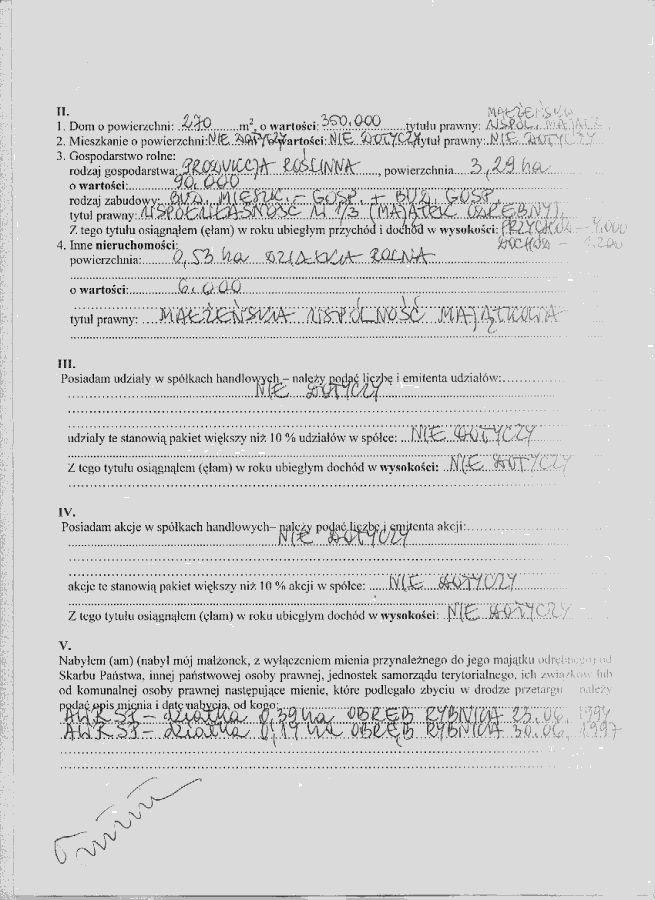 II.
MAŁŻEŃSKA
1. Dom o powierzchni: 270 m², o wartości: 350.000 tytułu prawny: WSPÓL. MAJĄTK.
2. Mieszkanie o powierzchni: NIE DOTYCZY o wartości: NIE DOTYCZY tytuł prawny: NIE DOTYCZY
3. Gospodarstwo rolne:
rodzaj gospodarstwa: PRODUKCJA ROŚLINNA, powierzchnia 3,29 ha
o wartości: 90.000
rodzaj zabudowy: BUD. MIESZK. – GOSP. + BUD. GOSP.
tytuł prawny: WSPÓŁWŁASNOŚĆ W 1/3 (MAJĄTEK ODRĘBNY)
Z tego tytułu osiągnąłem (ęłam) w roku ubiegłym przychód i dochód w wysokości: PRZYCHÓD – 4.000
DOCHÓD – 1.200
4. Inne nieruchomości:
powierzchnia: 0,53 ha DZIAŁKA ROLNA
o wartości: 6.000
tytuł prawny: MAŁŻEŃSKA WSPÓLNOŚĆ MAJĄTKOWA
III.
Posiadam udziały w spółkach handlowych – należy podać liczbę i emitenta udziałów:
NIE DOTYCZY
udziały te stanowią pakiet większy niż 10 % udziałów w spółce: NIE DOTYCZY
Z tego tytułu osiągnąłem (ęłam) w roku ubiegłym dochód w wysokości: NIE DOTYCZY
IV.
Posiadam akcje w spółkach handlowych– należy podać liczbę i emitenta akcji:
NIE DOTYCZY
akcje te stanowią pakiet większy niż 10 % akcji w spółce: NIE DOTYCZY
Z tego tytułu osiągnąłem (ęłam) w roku ubiegłym dochód w wysokości: NIE DOTYCZY
V.
Nabyłem (am) (nabył mój małżonek, z wyłączeniem mienia przynależnego do jego majątku odrębnego) od
Skarbu Państwa, innej państwowej osoby prawnej, jednostek samorządu terytorialnego, ich związków lub
od komunalnej osoby prawnej następujące mienie, które podlegało zbyciu w drodze przetargu – należy
podać opis mienia i datę nabycia, od kogo:
AWRSP – działka 0,39 ha OBRĘB RYBNICA 23.06.
AWRSP – działka 0,14 ha OBRĘB RYBNICA 30.06.1997